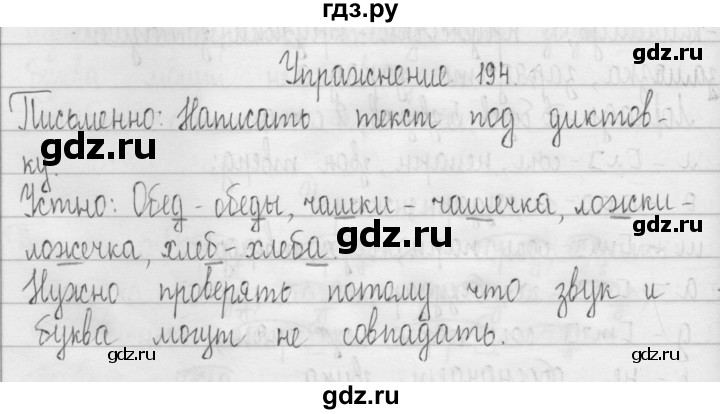 гдз.ру
Упражнение 194.
Письменно: Написать текст под диктов-
ку.
Устно: Обед - обеды, чашки - чашечка, ложки -
ложечка, хлеб - хлеба.
Нужно проверять потому что звук и
буква могут не совпадать.
gdz.ru
gdz.ru
gdz.ru
gdz.ru
gdz.ru
gdz.ru
gdz.ru
gdz.ru
gdz.ru
gdz.ru
gdz.ru